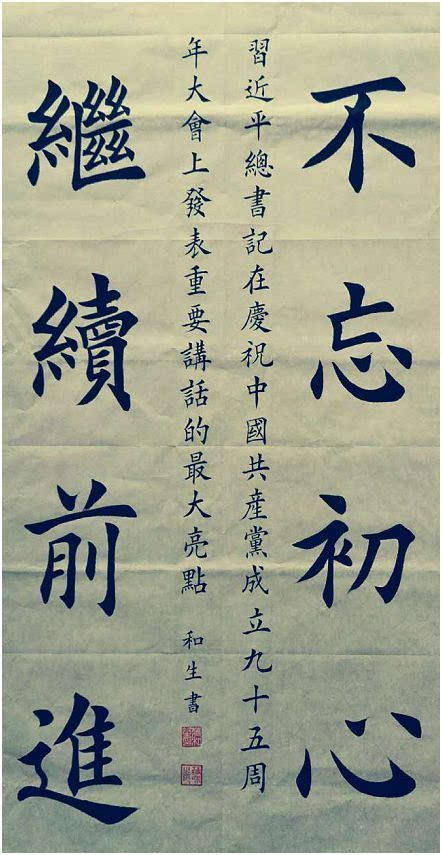 不忘初心
習近平總書記在慶祝中國共産黨成立九十五周
年大會上發表重要講話的最大亮點 和生書
繼續前進